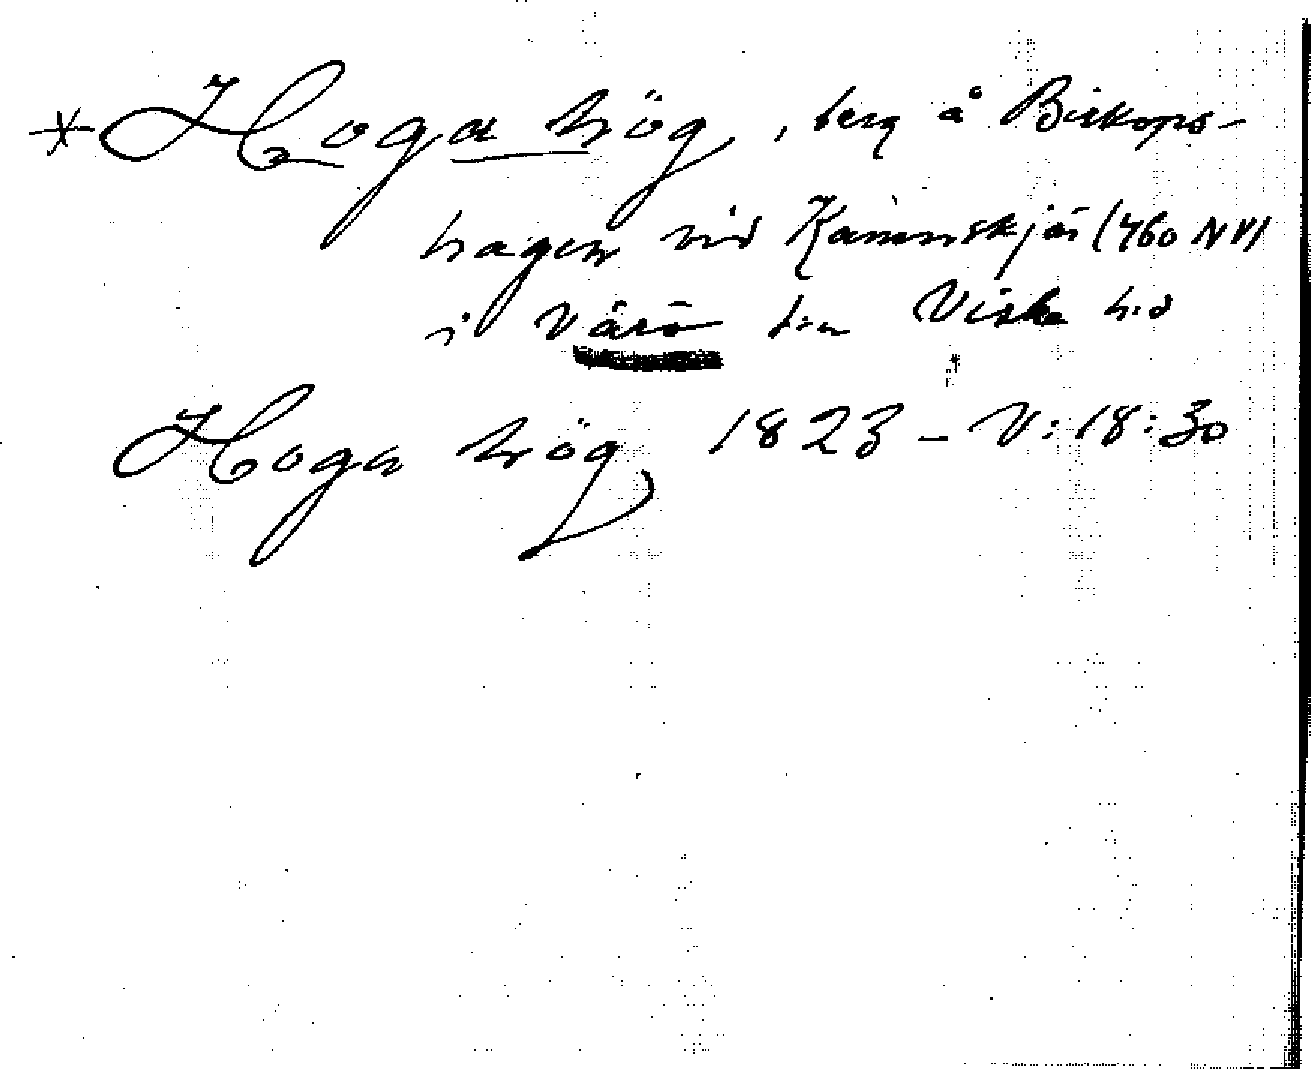 * Hoga hög, berg å Biskops-
hagen vid Kaninskjär (760 NV)
i Värö sn Viske hd
Hoga hög 1823 – V: 18:30